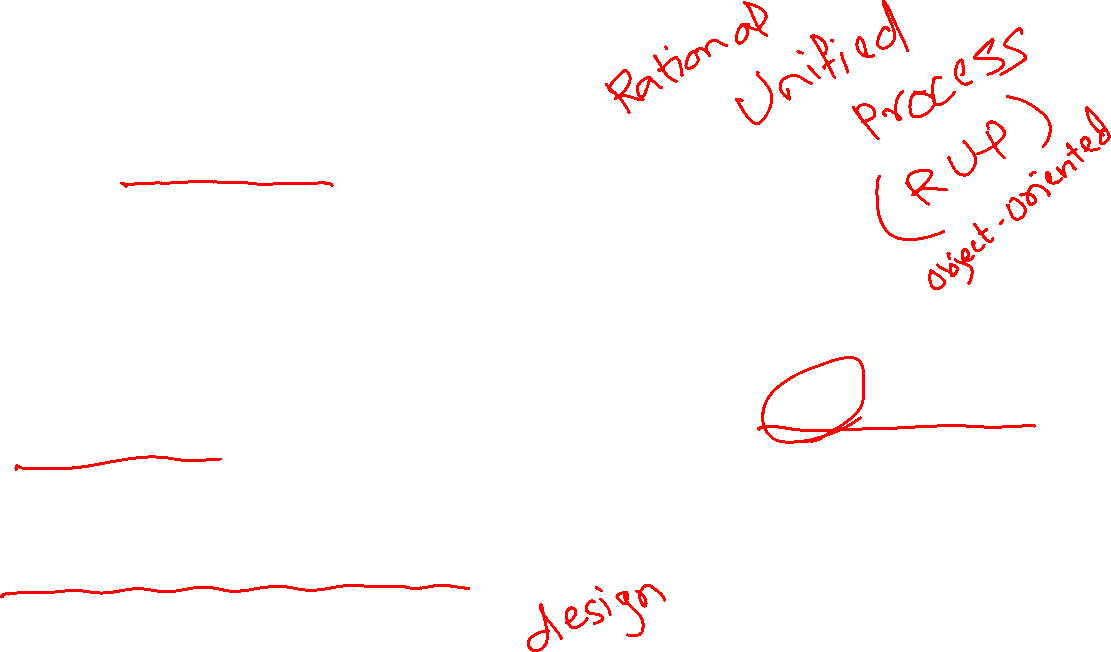 Rational
Unified
Process
(RUP)
Object-Oriented
design